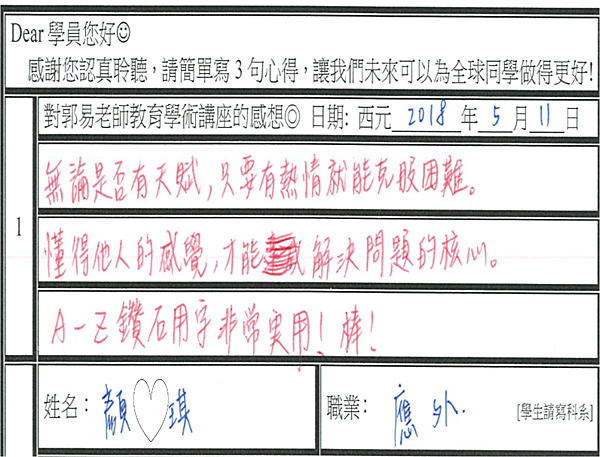 Dear 學員您好☺
感謝您認真聆聽，請簡單寫 3 句心得，讓我們未來可以為全球同學做得更好!
1
對郭易老師教育學術講座的感想◎ 日期: 西元 2018 年 5 月 11 日
無論是否有天賦，只要有熱情就能克服困難。
懂得他人的感覺，才能解決問題的核心。
A-Z鑽石用字非常實用！棒！
姓名： 顏♡琪 職業： 應外. [學生請寫科系]